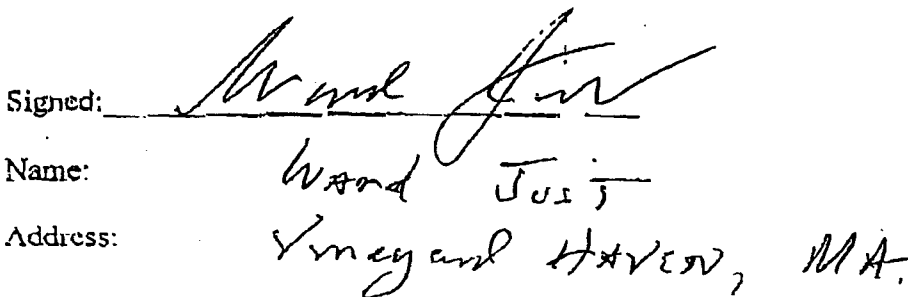 Signed: Ward Just
Name: Ward Just
Address: Vineyard HAVEN, MA.